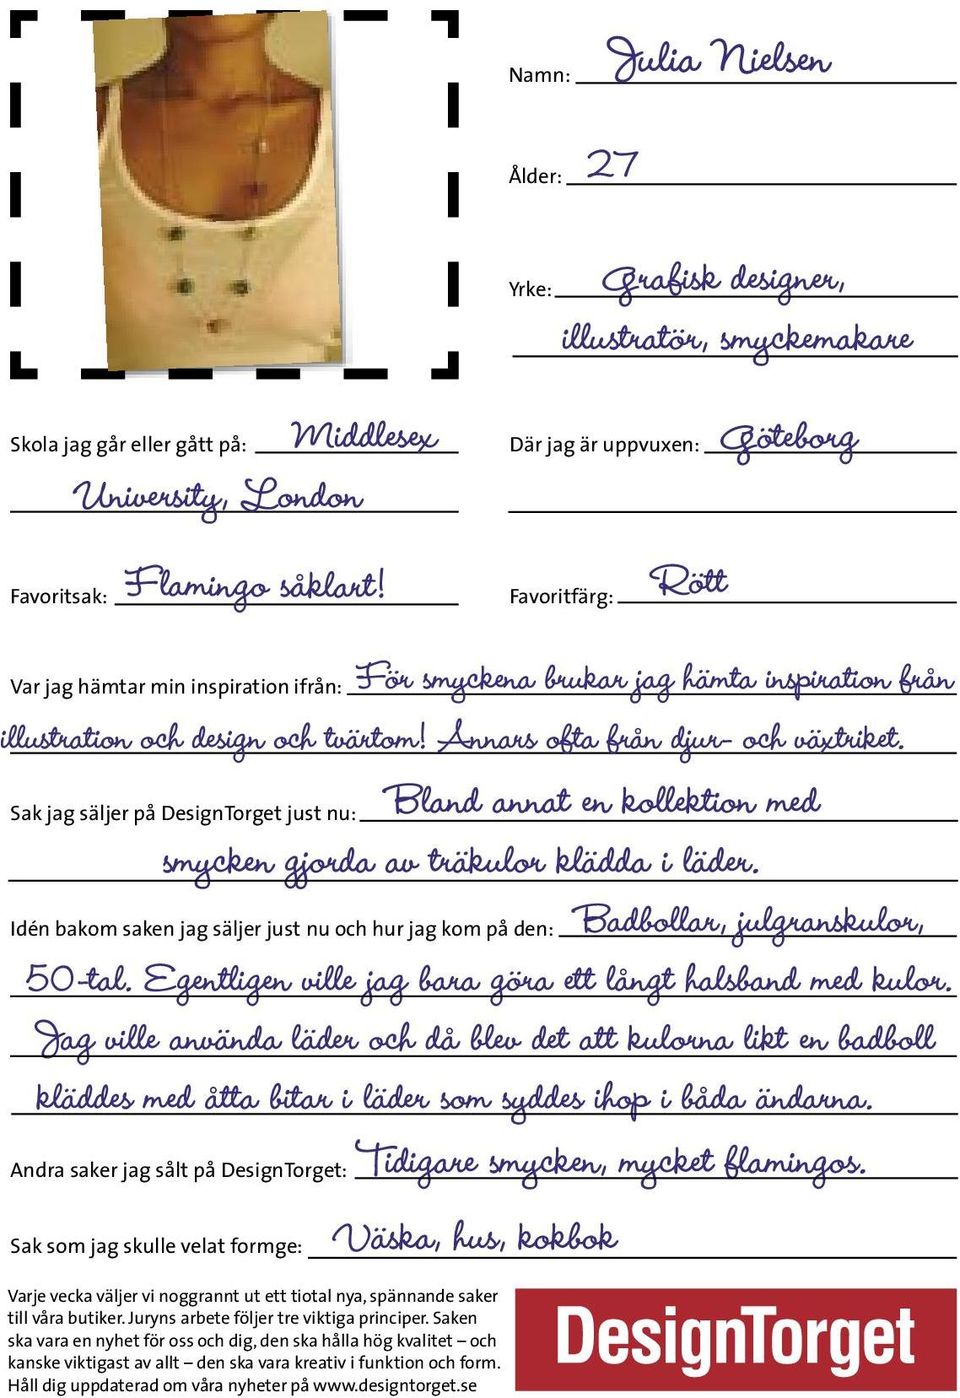 Namn: Julia Nielsen
Ålder: 27
Yrke: Grafisk designer,
illustratör, smyckemakare
Skola jag går eller gått på: Middlesex
University, London
Där jag är uppvuxen: Göteborg
Favoritsak: Flamingo såklart!
Favoritfärg: Rött
Var jag hämtar min inspiration ifrån: För smyckena brukar jag hämta inspiration från
illustration och design och tvärtom! Annars ofta från djur- och växtriket.
Sak jag säljer på DesignTorget just nu: Bland annat en kollektion med
smycken gjorda av träkulor klädda i läder.
Idén bakom saken jag säljer just nu och hur jag kom på den: Badbollar, julgranskulor,
50-tal. Egentligen ville jag bara göra ett långt halsband med kulor.
Jag ville använda läder och då blev det att kulorna likt en badboll
kläddes med åtta bitar i läder som syddes ihop i båda ändarna.
Andra saker jag sålt på DesignTorget: Tidigare smycken, mycket flamingos.
Sak som jag skulle velat formge: Väska, hus, kokbok
Varje vecka väljer vi noggrannt ut ett tiotal nya, spännande saker
till våra butiker. Juryns arbete följer tre viktiga principer. Saken
ska vara en nyhet för oss och dig, den ska hålla hög kvalitet – och
kanske viktigast av allt – den ska vara kreativ i funktion och form.
Håll dig uppdaterad om våra nyheter på www.designtorget.se
DesignTorget